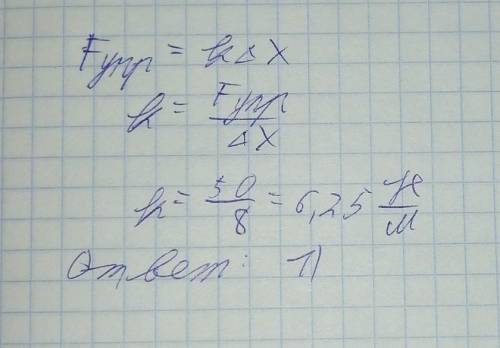 Fупр = kΔX
k = Fупр / ΔX
k = 50 / 8 = 6,25 Н / М
Ответ: 1)